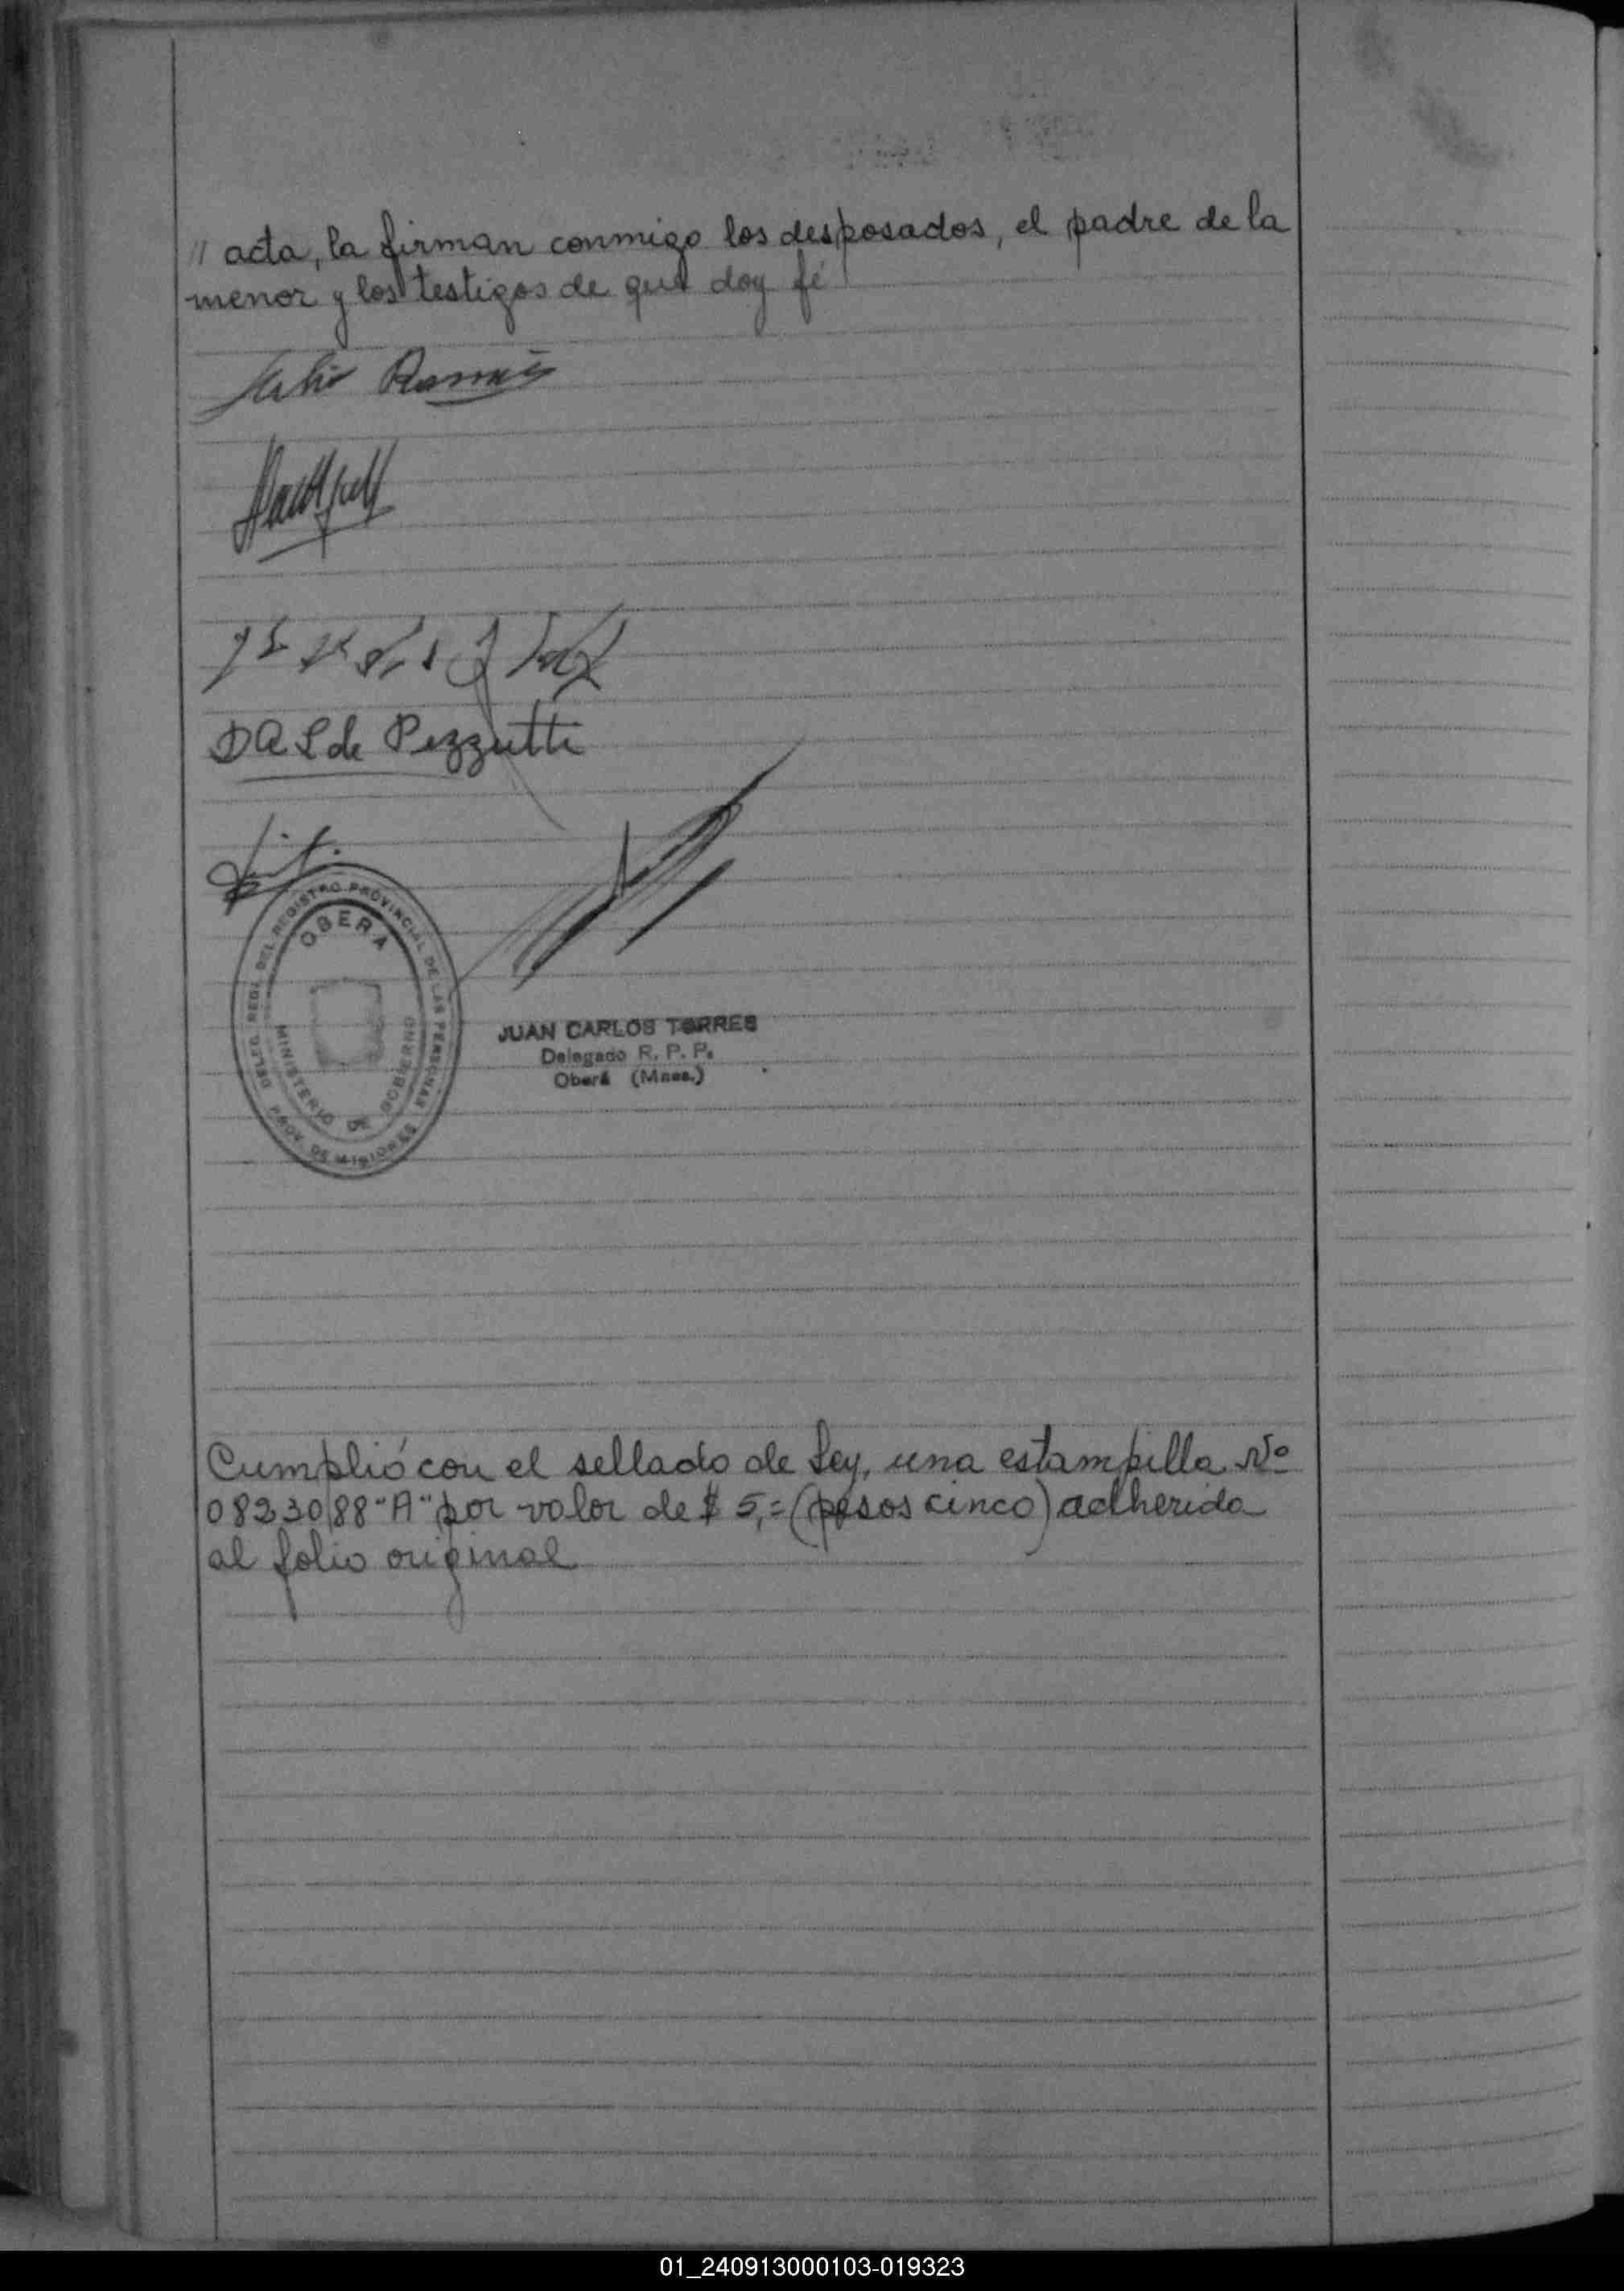 // acta, la firman conmigo los desposados, el padre de la
menor y los testigos de que doy fé
Julio Ramis
D A L de Pezzutti
DELEG. REG. DEL REGISTRO PROVINCIAL DE LAS PERSONAS
OBERA
MINISTERIO DE GOBIERNO
PROV. DE MISIONES
JUAN CARLOS TORRES
Delegado R. P. P.
Oberá (Mnes.)
Cumplió con el sellado de Ley, una estampilla Nº
0823088 "A" por valor de $ 5,= (pesos cinco) adherida
al folio original
01_240913000103-019323